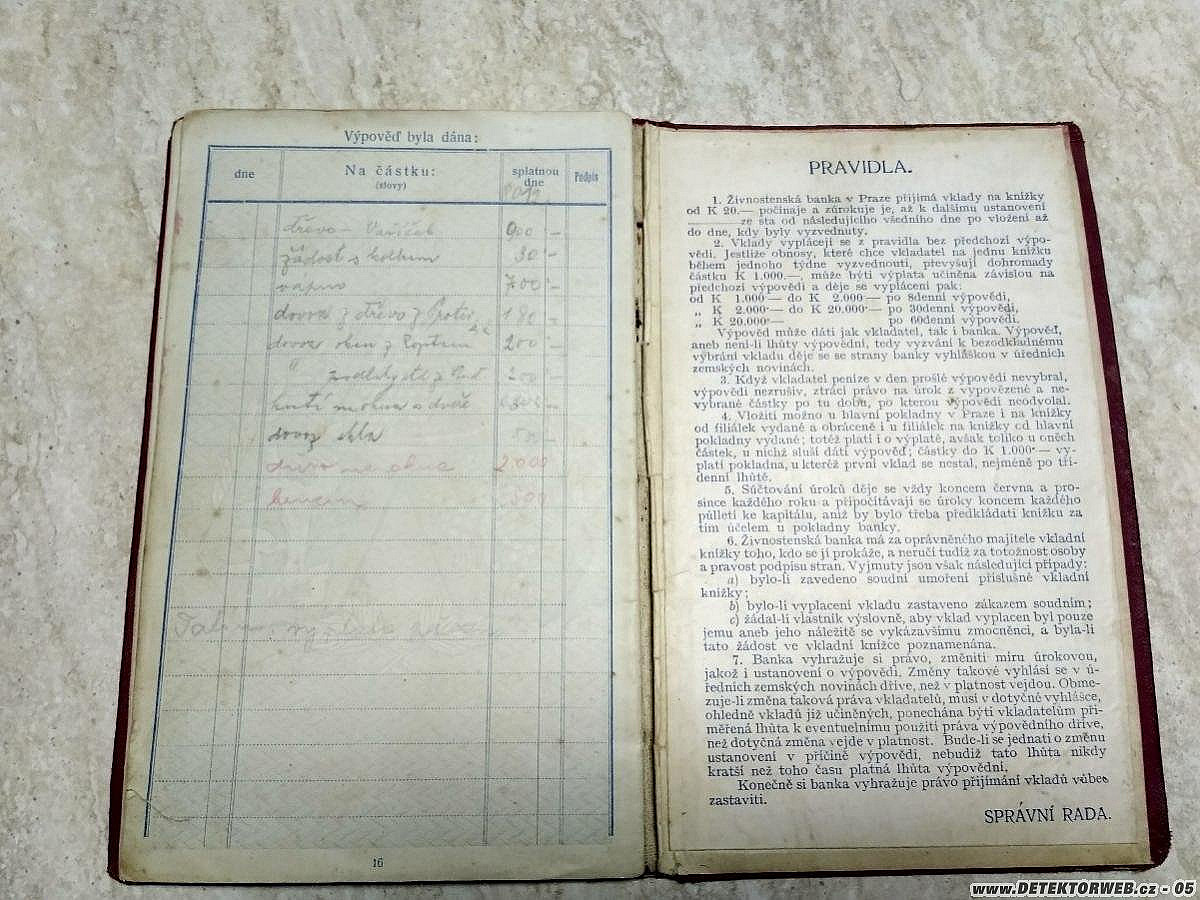 Výpověď byla dána:
dne
Na částku:
(slovy)
splatnou
dne
Podpis
dřevo – 900 –
žádost s kolkem 30 –
vápno 700 –
dovoz z dřevo z 180 –
dovoz oken z 200 –
" 200 –
dovoz skla
2.000
16
PRAVIDLA.
1. Živnostenská banka v Praze přijímá vklady na knížky
od K 20.— počínaje a zúrokuje je, až k dalšímu ustanovení
ze sta od následujícího všedního dne po vložení až
do dne, kdy byly vyzvednuty.
2. Vklady vyplácejí se z pravidla bez předchozí výpo-
vědi. Jestliže obnosy, které chce vkladatel na jednu knížku
během jednoho týdne vyzvednouti, převyšují dohromady
částku K 1.000·—, může býti výplata učiněna závislou na
předchozí výpovědi a děje se vyplácení pak:
od K 1.000·— do K 2.000·— po 8denní výpovědi,
„ K 2.000·— do K 20.000·— po 30denní výpovědi,
„ K 20.000·— po 60denní výpovědi.
Výpověď může dáti jak vkladatel, tak i banka. Výpověď,
aneb není-li lhůty výpovědní, tedy vyzvání k bezodkladnému
vybrání vkladu děje se se strany banky vyhláškou v úředních
zemských novinách.
3. Když vkladatel peníze v den prošlé výpovědi nevybral,
výpovědi nezrušiv, ztrácí právo na úrok z vypovězené a ne-
vybrané částky po tu dobu, po kterou výpovědi neodvolal.
4. Vložiti možno u hlavní pokladny v Praze i na knížky
od filiálek vydané a obráceně i u filiálek na knížky od hlavní
pokladny vydané; totéž platí i o výplatě, avšak toliko u oněch
částek, u nichž sluší dáti výpověď; částky do K 1.000·— vy-
platí pokladna, u kteréž první vklad se nestal, nejméně po tří-
denní lhůtě.
5. Súčtování úroků děje se vždy koncem června a pro-
since každého roku a připočítávají se úroky koncem každého
půlletí ke kapitálu, aniž by bylo třeba předkládati knížku za
tím účelem u pokladny banky.
6. Živnostenská banka má za oprávněného majitele vkladní
knížky toho, kdo se jí prokáže, a neručí tudíž za totožnost osoby
a pravost podpisu stran. Vyjmuty jsou však následující případy:
a) bylo-li zavedeno soudní umoření příslušné vkladní
knížky;
b) bylo-li vyplacení vkladu zastaveno zákazem soudním;
c) žádal-li vlastník výslovně, aby vklad vyplacen byl pouze
jemu aneb jeho náležitě se vykázavšímu zmocněnci, a byla-li
tato žádost ve vkladní knížce poznamenána.
7. Banka vyhražuje si právo, změniti míru úrokovou,
jakož i ustanovení o výpovědi. Změny takové vyhlásí se v ú-
ředních zemských novinách dříve, než v platnost vejdou. Obme-
zuje-li změna taková práva vkladatelů, musí v dotyčné vyhlášce,
ohledně vkladů již učiněných, ponechána býti vkladatelům při-
měřená lhůta k eventuelnímu použití práva výpovědního dříve,
než dotyčná změna vejde v platnost. Bude-li se jednati o změnu
ustanovení v příčině výpovědi, nebudiž tato lhůta nikdy
kratší než toho času platná lhůta výpovědní.
Konečně si banka vyhražuje právo přijímání vkladů vůbec
zastaviti.
SPRÁVNÍ RADA.
www.DETEKTORWEB.cz - 05